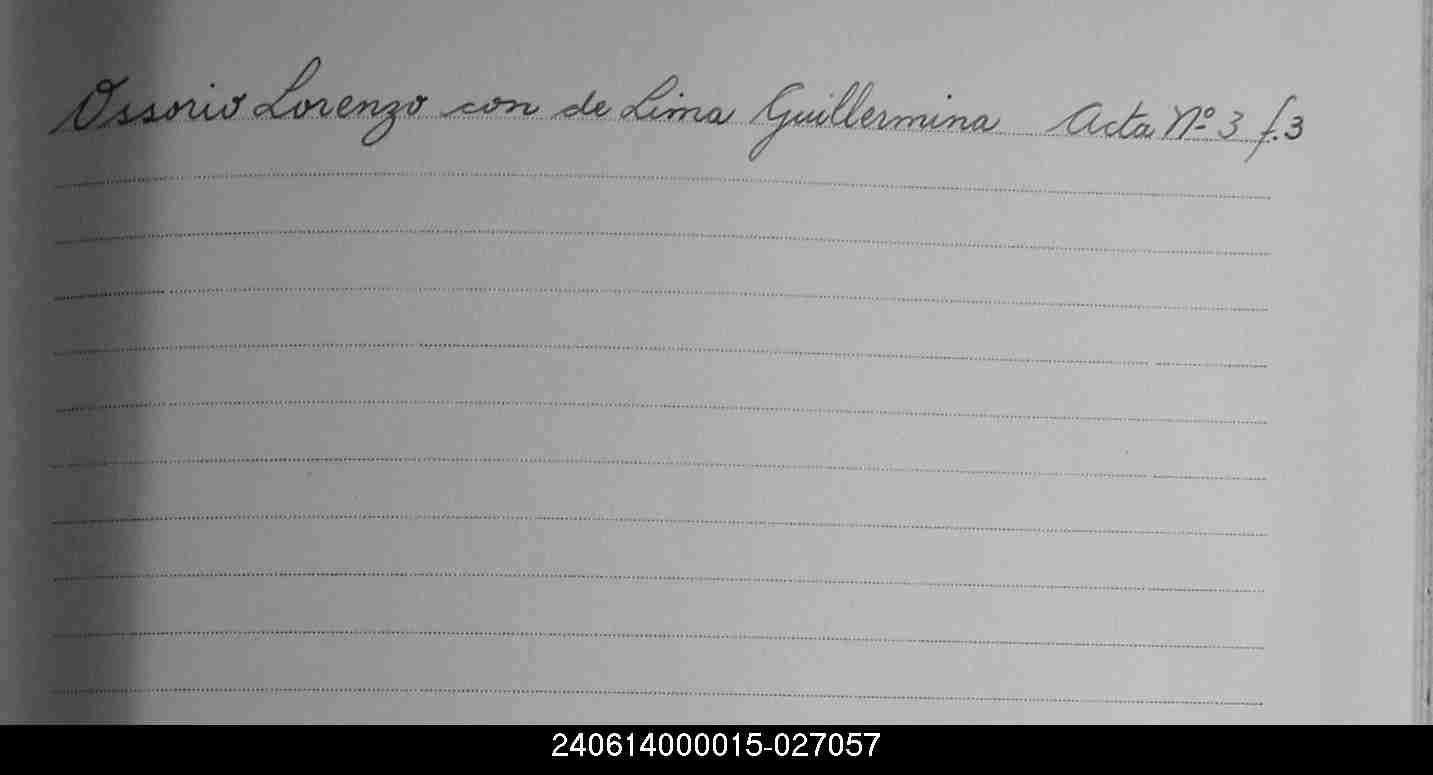 Ossorio Lorenzo con de Lima Guillermina Acta Nº 3 f.3
240614000015-027057